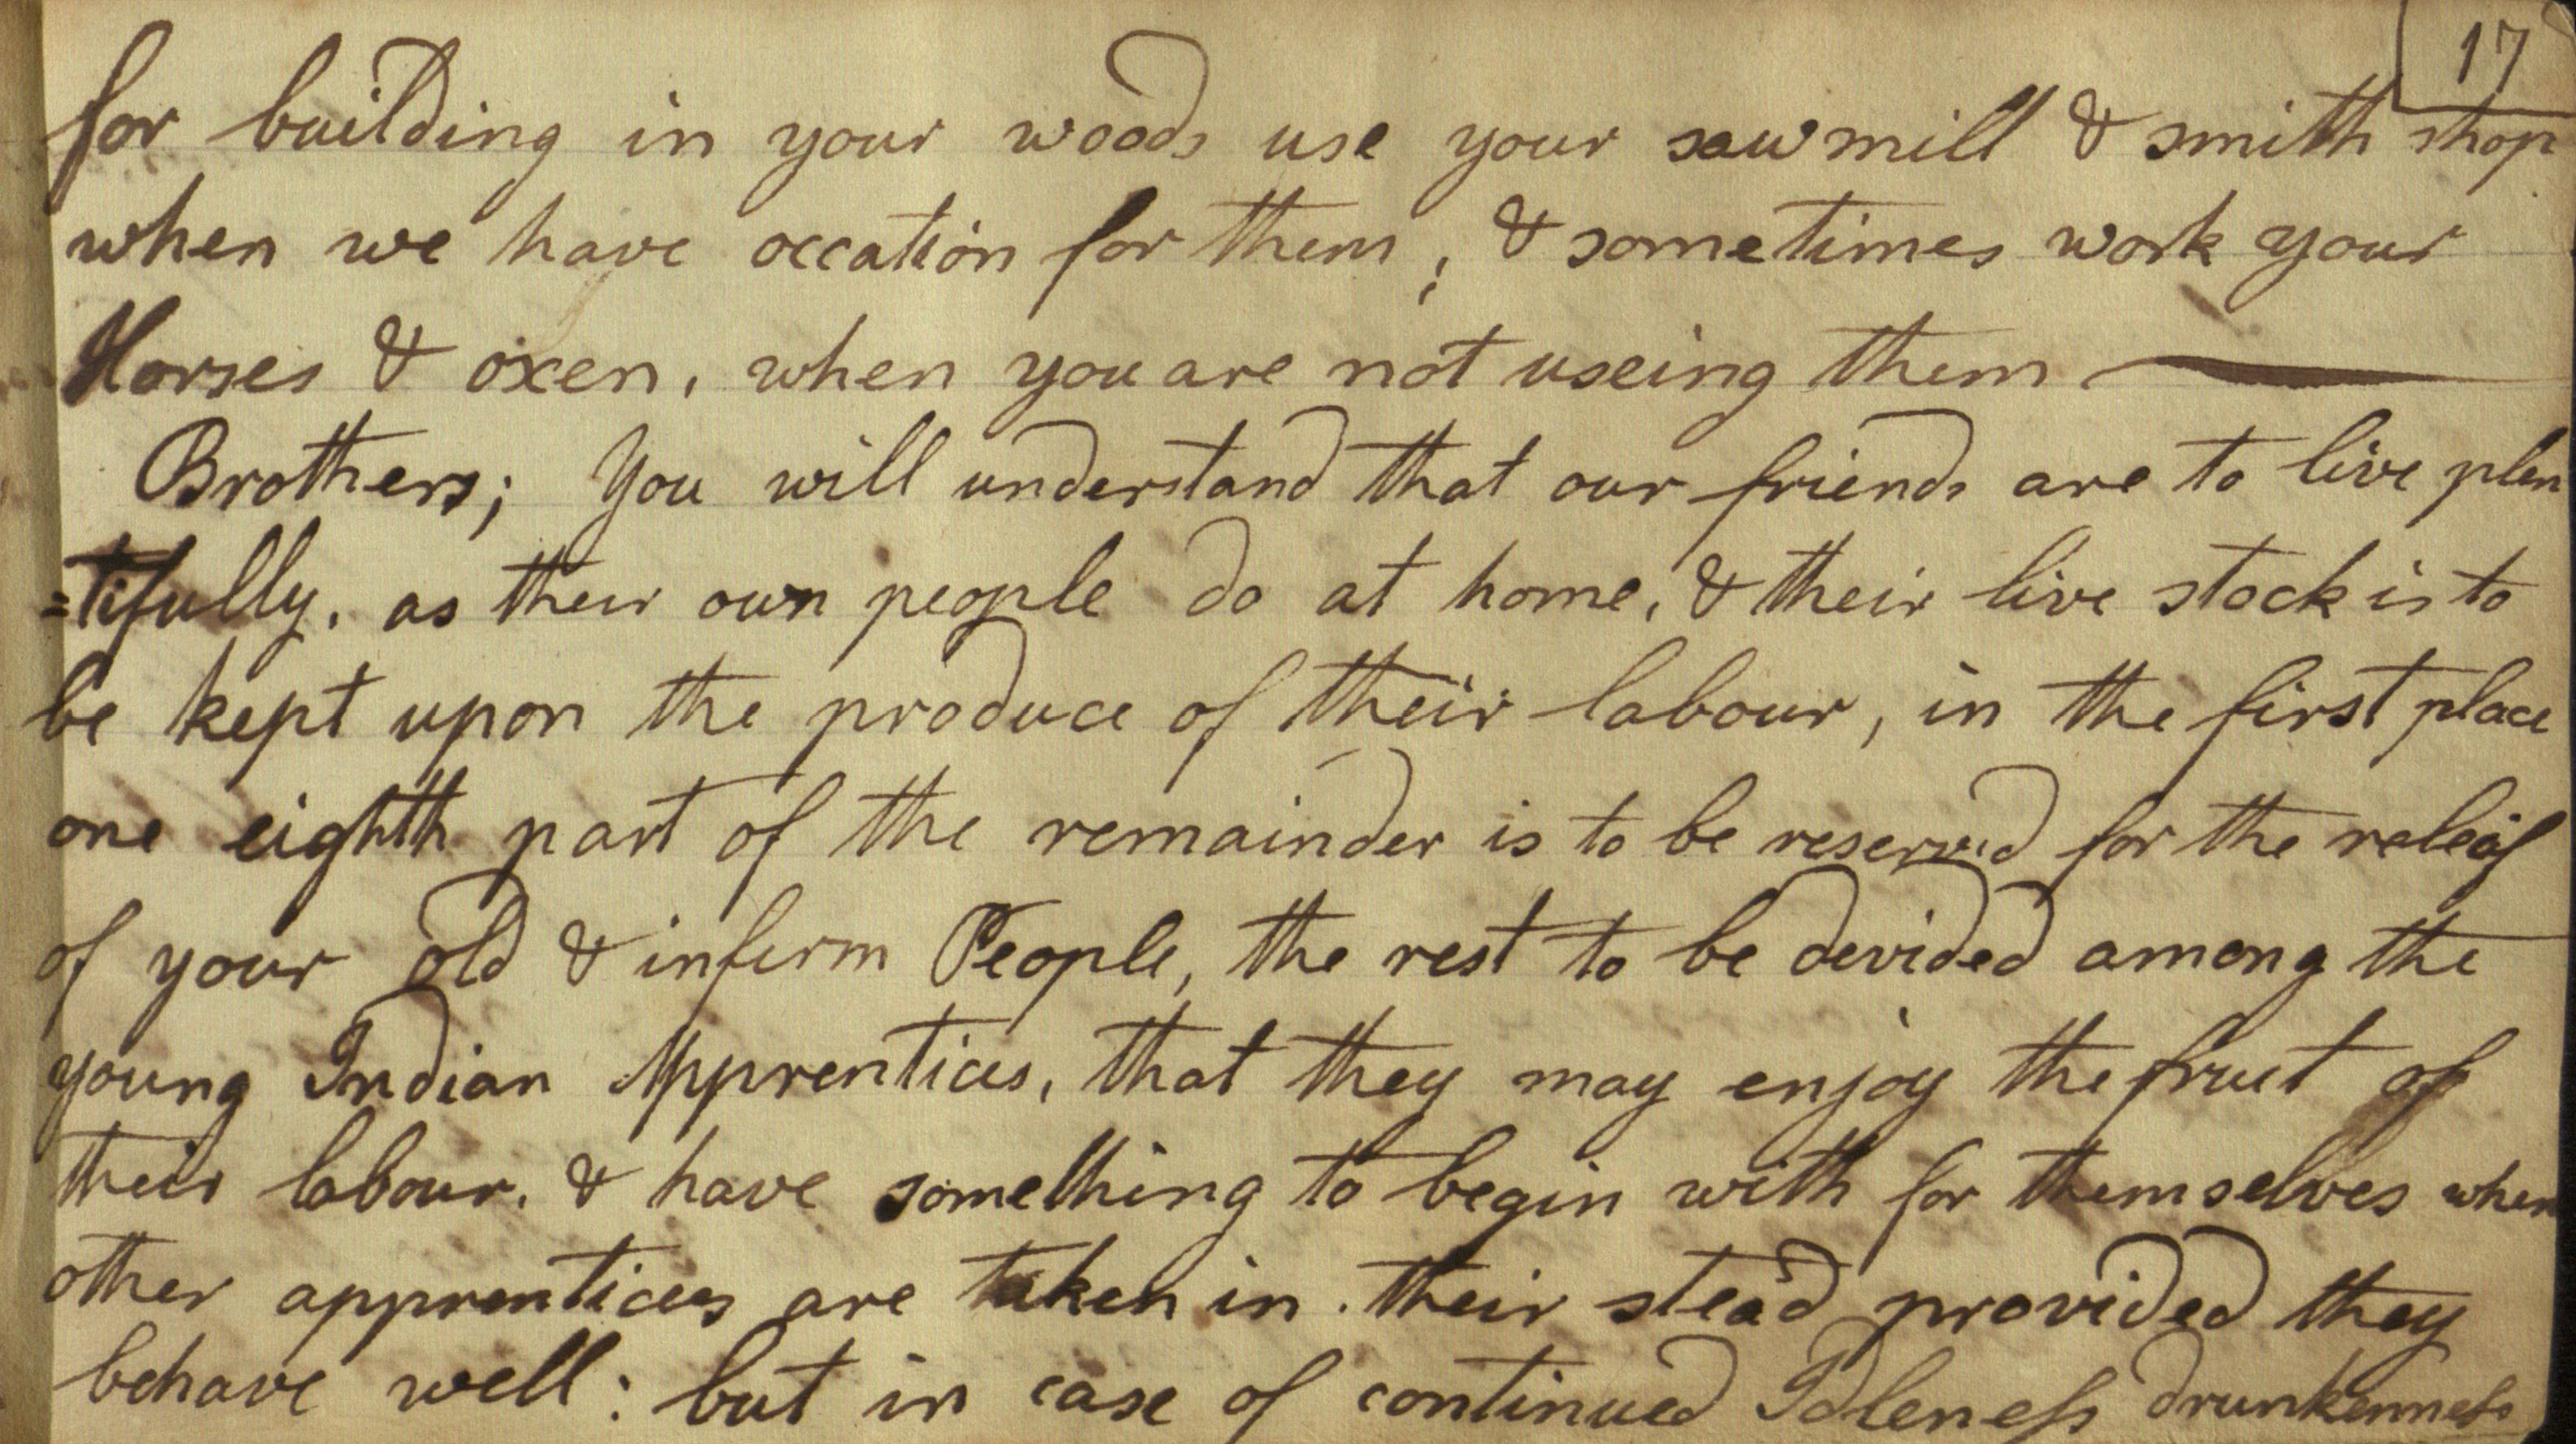 17
for building in your woods use your sawmill & smith shop
when we have occation for them; & sometimes work your
Horses & oxen, when you are not useing them
Brothers; You will understand that our friends are to live plen
=tifully, as their own people do at home, & their live stock is to
be kept upon the produce of their labour, in the first place
one eighth part of the remainder is to be reserved for the releif
of your old & infirm People, the rest to be devided among the
young Indian Apprentices, that they may enjoy the fruit of
their labour, & have something to begin with for themselves when
other apprentices are taken in their stead provided they
behave well: but in case of continued Idleness drunkenness